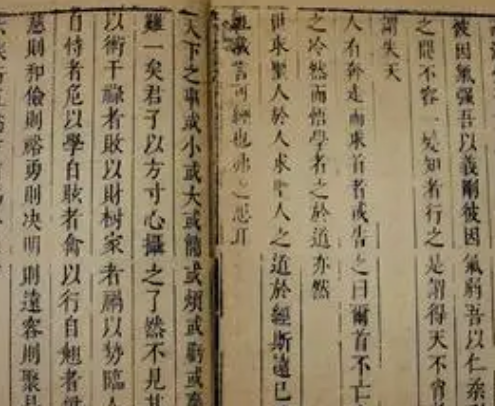 彼因氣强吾以義剛彼因氣弱吾以仁柔
之間不容一髮知者行之是謂得天不肖
謂失天
人有奔走而求首者或告之曰爾首不亡
之冷然而悟學者之於道亦然
世求聖人於人求聖人之道於經斯遠已
可經也弗之思耳
天下之事或小或大或簡或煩或虧或
雖一矣君子以方寸心攝之了然不見其
以術干祿者敗以財樹家者禍以勢臨人
自恃者危以學自眩者禽以行自翹者
慈則和儉則裕勇則决明則遠容則聚